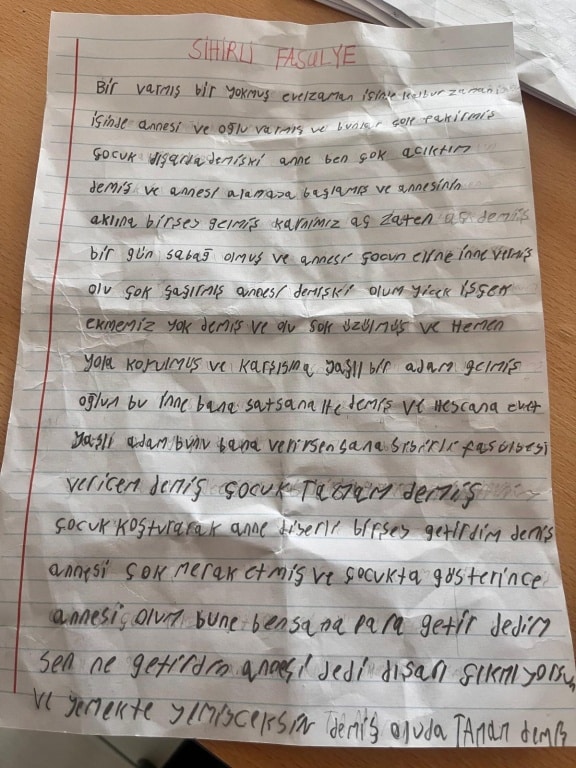 SİHİRLİ FASULYE
Bir varmış bir yokmuş evelzaman işinde kalbur zamanı
işinde annesi ve oğlu varmış ve bunlar çok fakirmiş
çocuk dışarda demişki anne ben çok acıktım
demiş ve annesi alamaya başlamış ve annesinin
aklına birşey gelmiş karnımız aç zaten aç demiş
bir gün sabağ olmuş ve annesi çocun eline inne vermiş
olu çok şaşırmış annesi demişki olum yicek işçek
ekmemiz yok demiş ve olu şok üzülmüş ve Hemen
yola koyulmuş ve karşısına yaşlı bir adam gelmiş
oğlum bu inne bana satsana demiş ve evet
yaşlı adam bunu bana verirsen sana sihirli fasulyesi
vericem demiş çocuk Tamam demiş
çocuk koşturarak anne birşey getirdim demiş
annesi çok merak etmiş ve çocukta gösterince
annesi olum bune bensana para getir dedim
sen ne getirdin annesi dedi dışarı çıkmıyorsun
ve yemekte yemişceksin demiş oluda TAMAM demiş